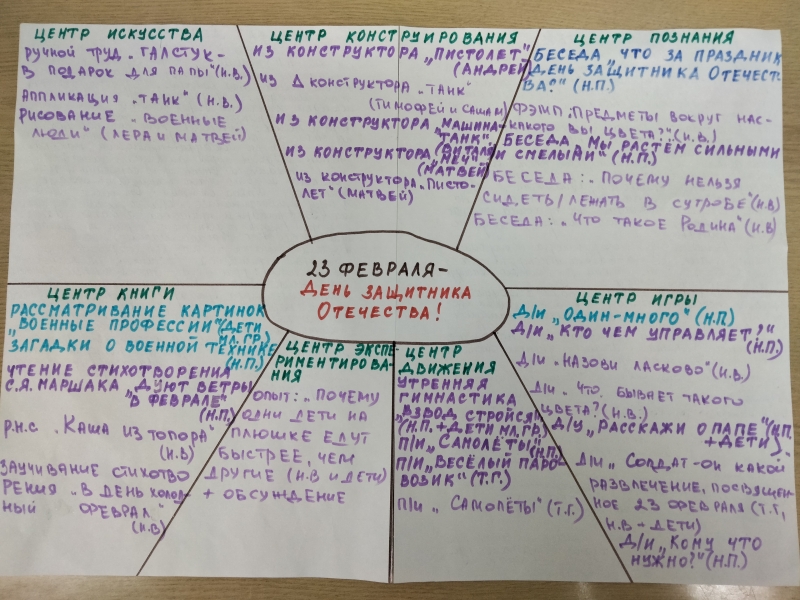 ЦЕНТР ИСКУССТВА
РУЧНОЙ ТРУД „ГАЛСТУК-
В ПОДАРОК ДЛЯ ПАПЫ" (Н.В.)
АППЛИКАЦИЯ „ТАНК" (Н.В.)
РИСОВАНИЕ „ВОЕННЫЕ
ЛЮДИ" (ЛЕРА И МАТВЕЙ)
ЦЕНТР КОНСТРУИРОВАНИЯ
ИЗ КОНСТРУКТОРА „ПИСТОЛЕТ"
(АНДРЕЙ)
ИЗ Δ КОНСТРУКТОРА „ТАНК"
(ТИМОФЕЙ И САША М)
ИЗ КОНСТРУКТОРА „МАШИНА-
ТАНК"
(ВИТАЛЯ)
ИЗ КОНСТРУКТОРА „МЕЧ"
(МАТВЕЙ)
ИЗ КОНСТРУКТОРА „ПИСТО-
ЛЕТ" (МАТВЕЙ)
ЦЕНТР ПОЗНАНИЯ
БЕСЕДА „ЧТО ЗА ПРАЗДНИК
ДЕНЬ ЗАЩИТНИКА ОТЕЧЕСТ-
ВА?" (Н.П.)
ФЭМП „ПРЕДМЕТЫ ВОКРУГ НАС-
КАКОГО ВЫ ЦВЕТА?" (Н.В.)
БЕСЕДА „МЫ РАСТЁМ СИЛЬНЫМИ
И СМЕЛЫМИ" (Н.П.)
БЕСЕДА: „ПОЧЕМУ НЕЛЬЗЯ
СИДЕТЬ/ЛЕЖАТЬ В СУГРОБЕ" (Н.В)
БЕСЕДА: „ЧТО ТАКОЕ РОДИНА" (Н.В)
23 ФЕВРАЛЯ-
ДЕНЬ ЗАЩИТНИКА
ОТЕЧЕСТВА!
ЦЕНТР КНИГИ
РАССМАТРИВАНИЕ КАРТИНОК
„ВОЕННЫЕ ПРОФЕССИИ" (ДЕТИ
МЛ.ГР.)
ЗАГАДКИ О ВОЕННОЙ ТЕХНИКЕ
(Н.П.)
ЧТЕНИЕ СТИХОТВОРЕНИЯ
С.Я. МАРШАКА „ДУЮТ ВЕТРЫ
В ФЕВРАЛЕ"
(Н.П.)
Р.Н.С „КАША ИЗ ТОПОРА"
(Н.В)
ЗАУЧИВАНИЕ СТИХОТВО
РЕНИЯ „В ДЕНЬ ХОЛОД-
НЫЙ ФЕВРАЛЯ"
(Н.В)
ЦЕНТР ЭКСПЕ-
РИМЕНТИРОВА-
НИЯ
ОПЫТ: „ПОЧЕМУ
ОДНИ ДЕТИ НА
ПЛЮШКЕ ЕДУТ
БЫСТРЕЕ, ЧЕМ
ДРУГИЕ (Н.В И ДЕТИ)
+ ОБСУЖДЕНИЕ
ЦЕНТР
ДВИЖЕНИЯ
УТРЕННЯЯ
ГИМНАСТИКА
„ВЗВОД СТРОЙСЯ"
(Н.П.+ДЕТИ МЛ.ГР)
П/И „САМОЛЁТЫ"
(Н.П.)
П/И „ВЕСЁЛЫЙ ПАРО-
ВОЗИК" (Т.Г.)
П/И „САМОЛЁТЫ" (Т.Г.)
ЦЕНТР ИГРЫ
Д/И „ОДИН-МНОГО" (Н.П.)
Д/И „КТО ЧЕМ УПРАВЛЯЕТ?"
(Н.П.)
Д/И „НАЗОВИ ЛАСКОВО" (Н.В.)
Д/И „ЧТО БЫВАЕТ ТАКОГО
ЦВЕТА? (Н.В.)
Д/У „РАССКАЖИ О ПАПЕ" (Н.П.
+ДЕТИ)
Д/И „СОЛДАТ-ОН КАКОЙ
РАЗВЛЕЧЕНИЕ, ПОСВЯЩЕН-
НОЕ 23 ФЕВРАЛЯ (Т.Г,
Н.В - ДЕТИ)
Д/И „КОМУ ЧТО
НУЖНО?" (Н.П.)